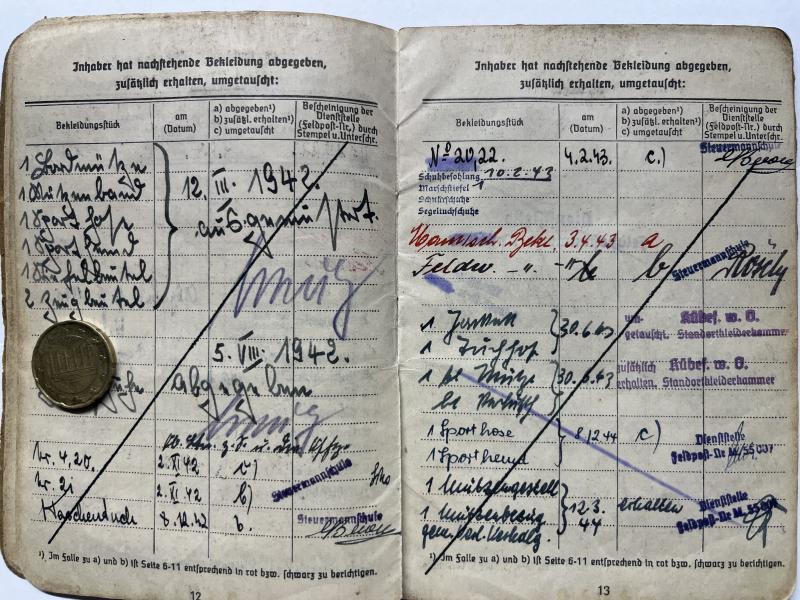 Inhaber hat nachstehende Bekleidung abgegeben,
zusätzlich erhalten, umgetauscht:
Bekleidungsstück
am
(Datum)
a) abgegeben¹)
b) zusätzl. erhalten¹)
c) umgetauscht
Bescheinigung der
Dienststelle
(Feldpost-Nr.) durch
Stempel u. Unterschr.
1 Bordmütze
1 Mützenband
1 Sporthose
1 Sporthemd
1 Stiefelbeutel
2 Zeugbeutel
12. III. 1942.
ausgemustert.
5. VIII. 1942.
abgegeben
Nr. 4, 20.
2. XI 42
c)
Nr. 21
2. XI 42
b)
Steuermannsschule
Taschentuch
8. 12. 42
b.
Steuermannsschule
¹) Im Falle zu a) und b) ist Seite 6-11 entsprechend in rot bzw. schwarz zu berichtigen.
12
Inhaber hat nachstehende Bekleidung abgegeben,
zusätzlich erhalten, umgetauscht:
Bekleidungsstück
am
(Datum)
a) abgegeben¹)
b) zusätzl. erhalten¹)
c) umgetauscht
Bescheinigung der
Dienststelle
(Feldpost-Nr.) durch
Stempel u. Unterschr.
No 20, 22.
4. 2. 43.
c.)
Steuermannsschule
Schuhbesohlung 10. 2. 43
Marschstiefel 1
Schnürschuhe
Segeltuchschuhe
3. 4. 43
a
Feldw. - " -
b
Steuermannsschule
1 Jackett
30. 6. 43
um-
getauscht.
Kübef. w. O.
Standortkleiderkammer
1 Tuchhose
1 bl Mütze
30. 6. 43
zusätzlich
erhalten.
Kübef. w. O.
Standortkleiderkammer
1 Sporthose
8/12 44
c)
Dienststelle
Feldpost-Nr M/55 007
1 Sporthemd
1 Mützengestell
1 Mützenbezug
12. 3.
44
erhalten
Dienststelle
Feldpost-Nr M/55 007
¹) Im Falle zu a) und b) ist Seite 6-11 entsprechend in rot bzw. schwarz zu berichtigen.
13